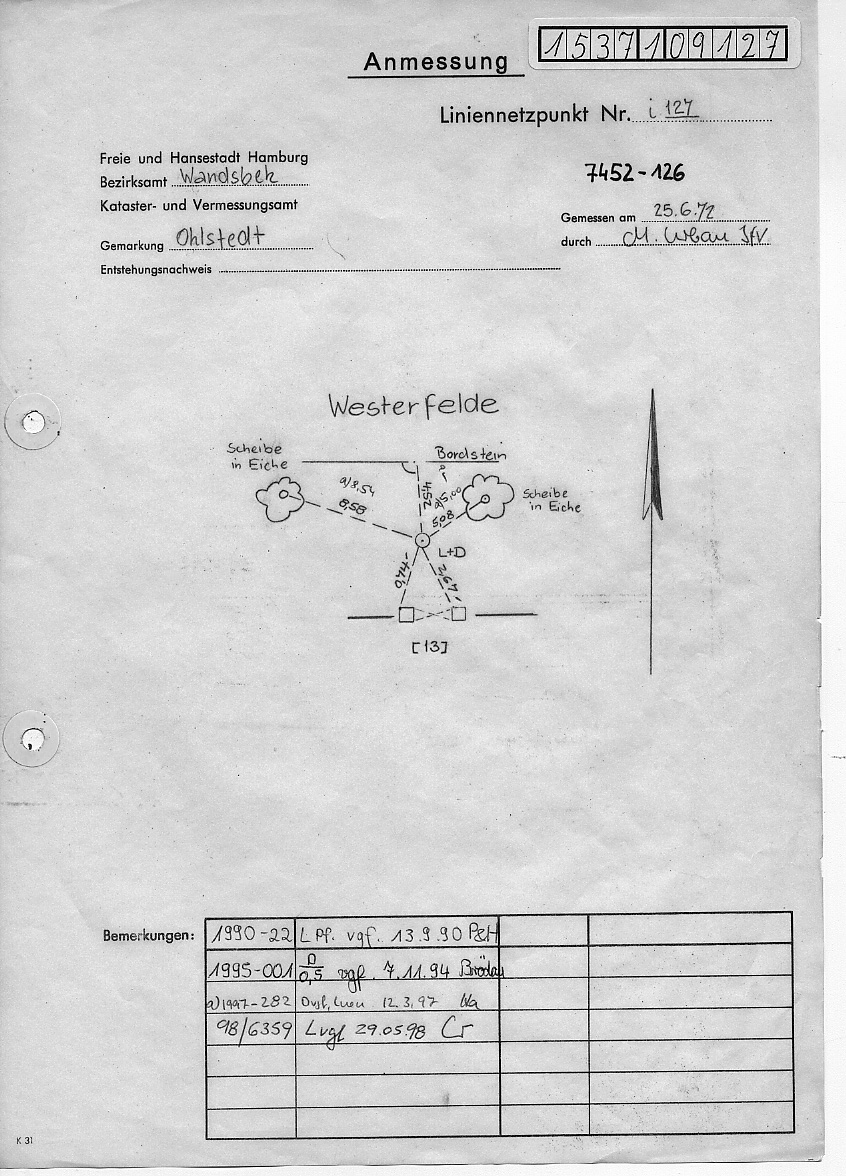 1537109127
Anmessung
Liniennetzpunkt Nr. i 127
Freie und Hansestadt Hamburg
Bezirksamt Wandsbek
7452-126
Kataster- und Vermessungsamt
Gemessen am 25.6.72
Gemarkung Ohlstedt
durch M. Urban
Entstehungsnachweis
Westerfelde
Scheibe
in Eiche
Bordstein
a)8,54
8,58
4,52
a)5,00
5,08
Scheibe
in Eiche
L+D
0,74
2,67
[13]
Bemerkungen:
1990-22 L Pf. vgf. 13.9.90 P&H
1995-001 D/0,5 vgf. 7.11.94
a)1997-282 12.3.97
98/6359 Lvgf 29.05.98 Cr
K 31